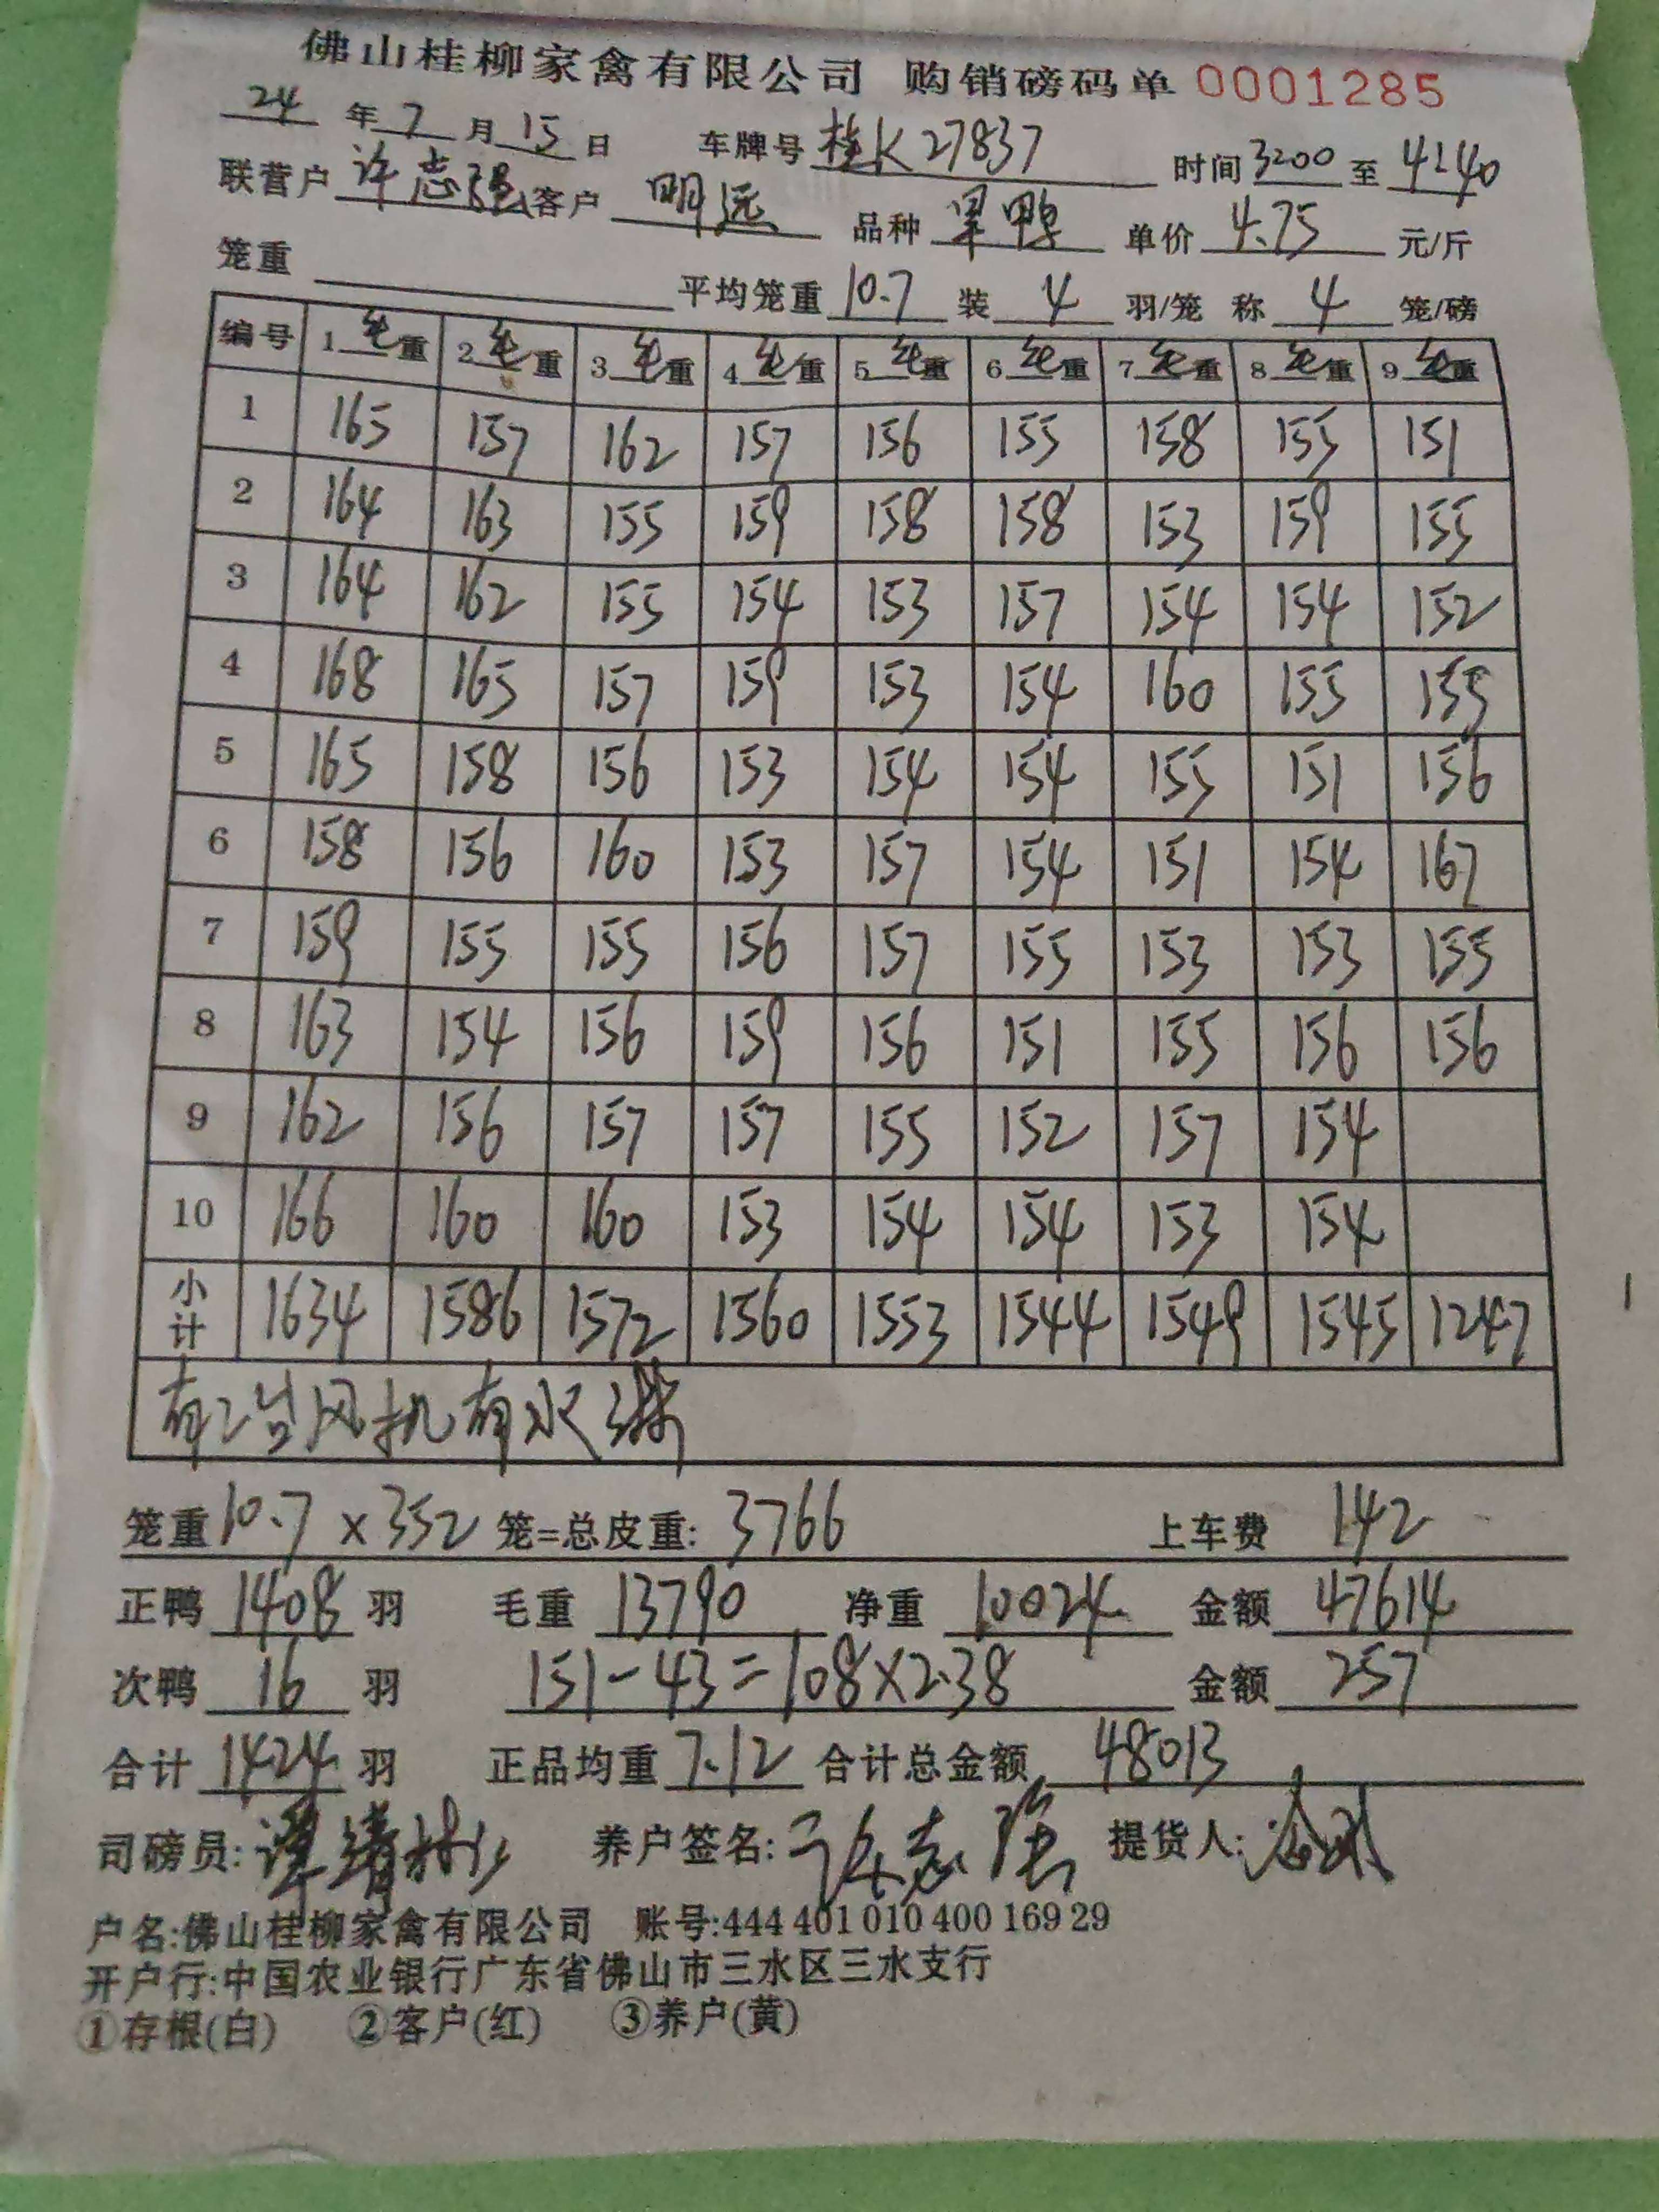 佛山桂柳家禽有限公司 购销磅码单 0001285
24 年 7 月 15 日 车牌号 桂K27837 时间 3200 至 4240
联营户 许志强 客户 明远 品种 單鸭 单价 4.75 元/斤
笼重 平均笼重 10.7 装 4 羽/笼 称 4 笼/磅
编号 1 毛重 2 毛重 3 毛重 4 毛重 5 毛重 6 毛重 7 毛重 8 毛重 9 毛重
1 165 157 162 157 156 155 158 155 151
2 164 163 155 159 158 158 153 159 155
3 164 162 155 154 153 157 154 154 152
4 168 165 157 159 153 154 160 155 155
5 165 158 156 153 154 154 155 151 156
6 158 156 160 153 157 154 151 154 167
7 159 155 155 156 157 155 153 153 155
8 163 154 156 159 156 151 155 156 156
9 162 156 157 157 155 152 157 154
10 166 160 160 153 154 154 153 154
小计 1634 1586 1572 1560 1553 1544 1549 1545 1247
有2台风机有水淋
笼重 10.7 x 352 笼=总皮重: 3766 上车费 142
正鸭 1408 羽 毛重 13790 净重 10024 金额 47614
次鸭 16 羽 151-43=108×2.38 金额 257
合计 1424 羽 正品均重 7.12 合计总金额 48013
司磅员: 养户签名: 许志强 提货人:
户名:佛山桂柳家禽有限公司 账号:444 401 010 400 169 29
开户行:中国农业银行广东省佛山市三水区三水支行
①存根(白) ②客户(红) ③养户(黄)